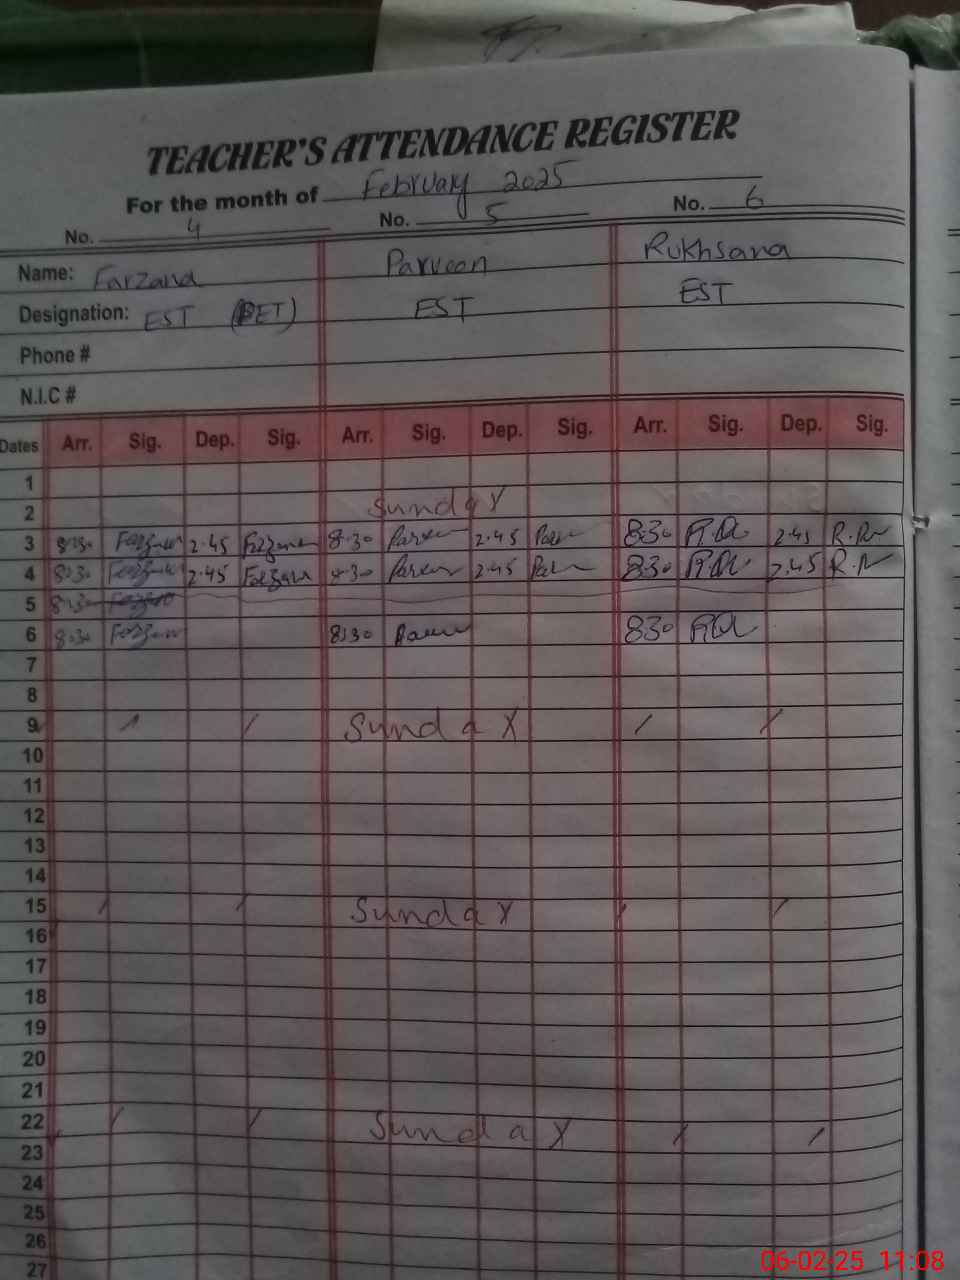 TEACHER'S ATTENDANCE REGISTER
For the month of February 2025
No. 4 No. 5 No. 6
Name: Farzana Parveen Rukhsana
Designation: EST (PET) EST EST
Phone #
N.I.C #
Dates Arr. Sig. Dep. Sig. Arr. Sig. Dep. Sig. Arr. Sig. Dep. Sig.
1
2 Sunday
3 8:30 2.45 8.30 2.45 8:30 2.45
4 8:30 2.45 8.30 2.45 8:30 2.45
5 8:30
6 8:30 8:30 8:30
7
8
9 Sunday
10
11
12
13
14
15 Sunday
16
17
18
19
20
21
22 Sunday
23
24
25
26
27
06-02-25 11:08